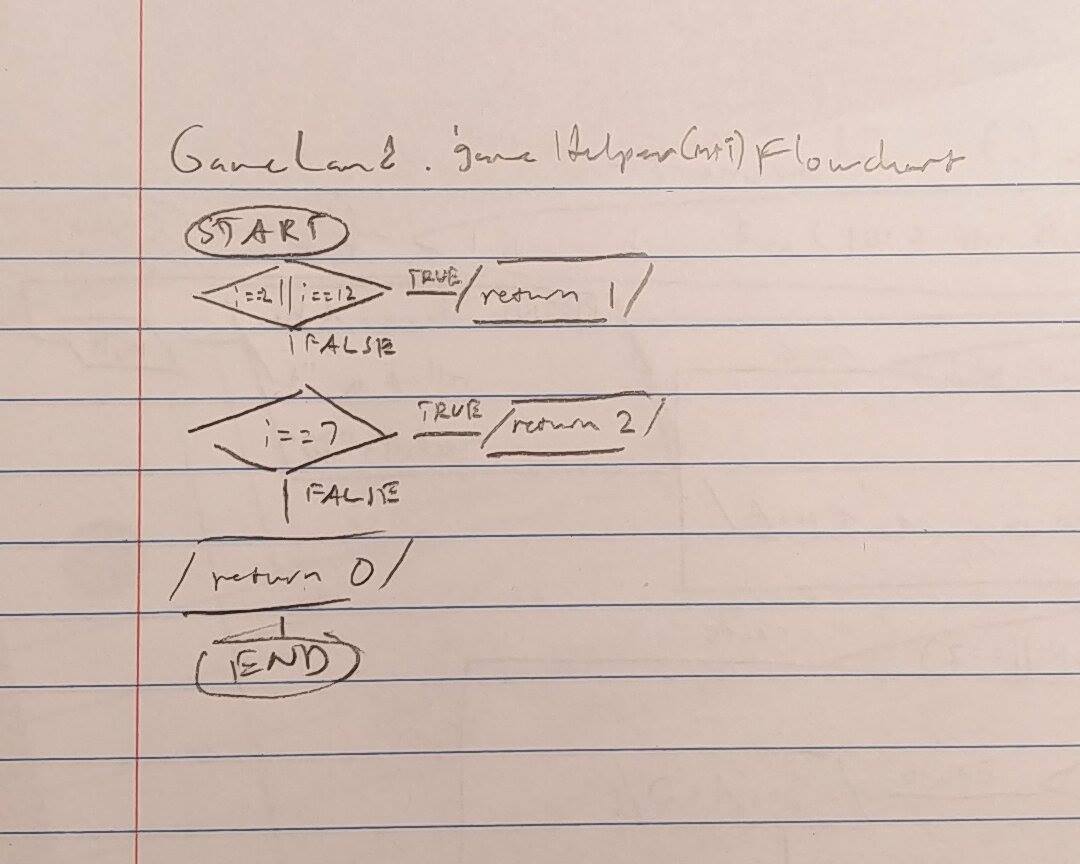 GameLan2. gameHelper(int i) Flowchart
START
i==2 || i==12 TRUE return 1
FALSE
i==7 TRUE return 2
FALSE
return 0
END